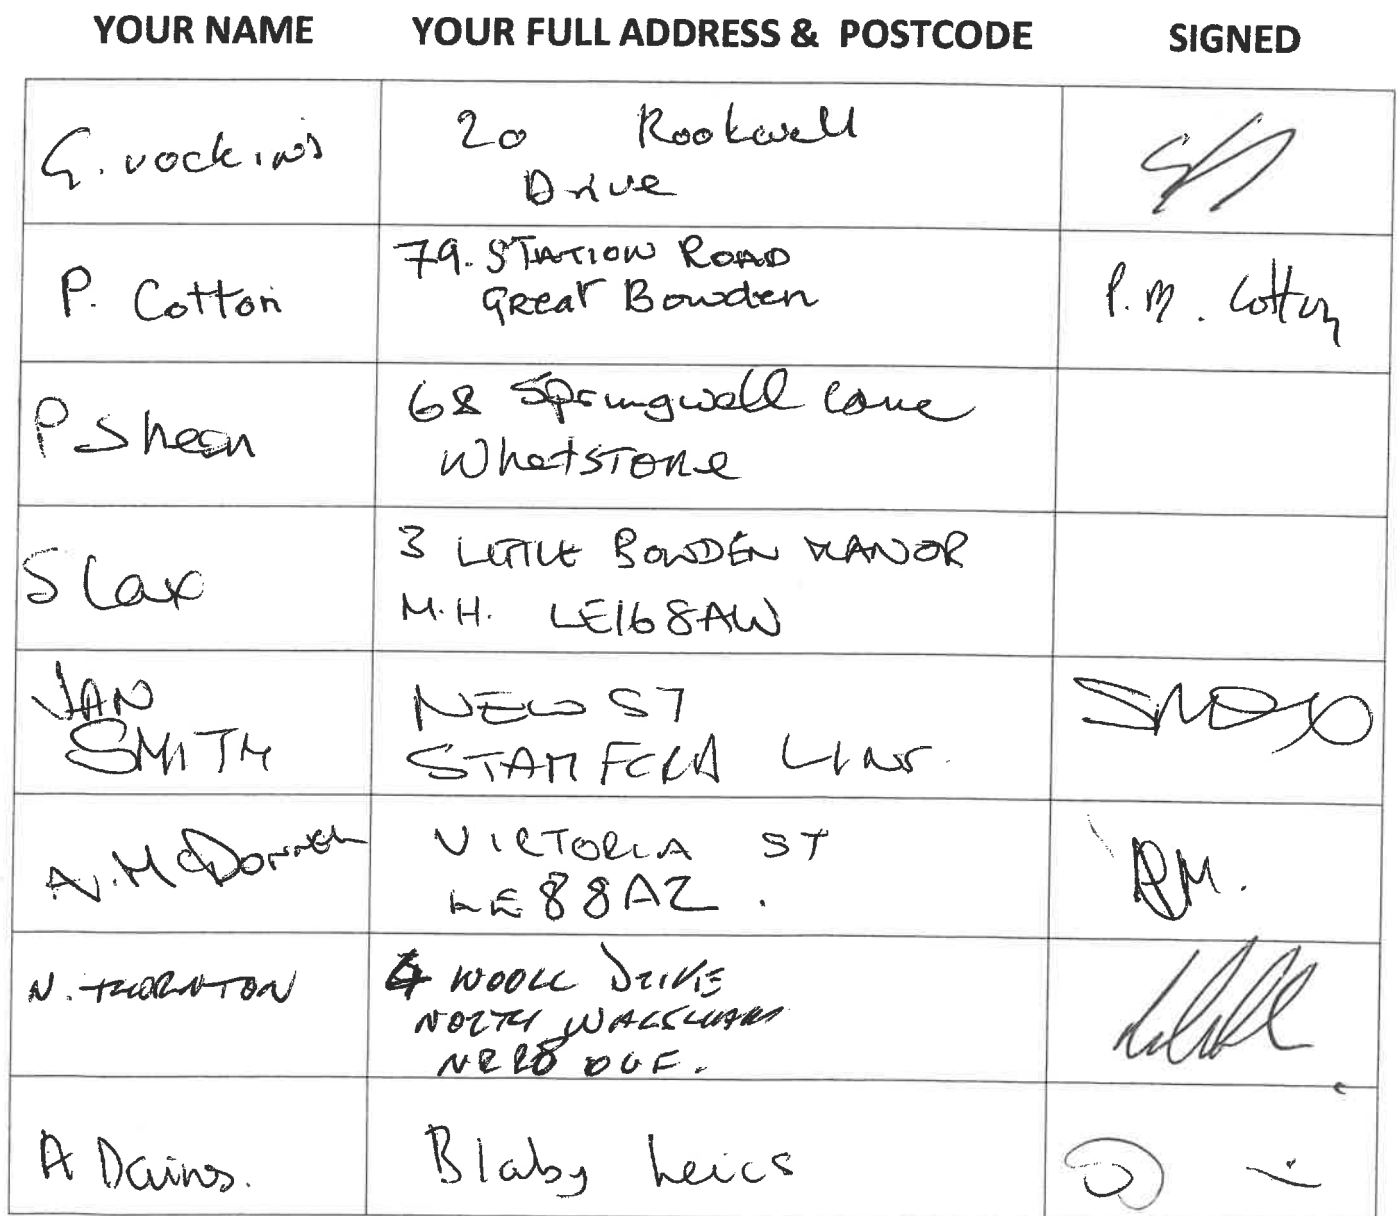 YOUR NAME YOUR FULL ADDRESS & POSTCODE SIGNED
G. Vockins 20 Rookwell
Drive
P. Cotton 79. STATION ROAD
Great Bowden
P.M. Cotton
P Sheen 68 Springwell Lane
WhetSTONe
S Lax 3 LITTLE BOWDEN MANOR
M.H. LE16 8AW
JAN
SMITH
NEW ST
STAMFORD LINS.
A. McDonnell VICTORIA ST
LE8 8AZ.
N. THORNTON 4 WOOLL DRIVE
NORTH WALSHAM
NR28
A Dains. Blaby Leics